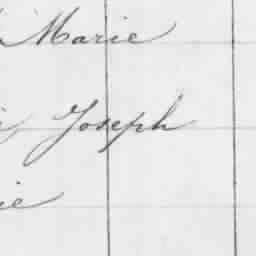 Marie
Joseph